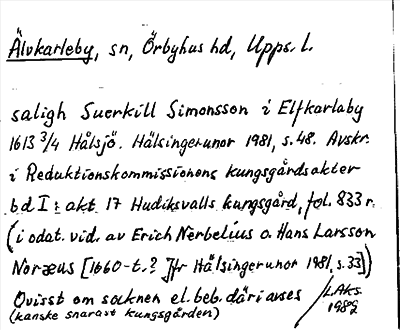 Älvkarleby, sn, Örbyhus hd, Upps. l.
saligh Suerkill Simonsson i Elfkarlaby
1613 3/4 Hålsjö. Hälsingerunor 1981, s. 48. Avskr.
i Reduktionskommissionens kungsgårdsakter
bd I: akt 17 Hudiksvalls kungsgård, fol. 833 r.
(i odat. vid. av Erich Nerbelius o. Hans Larsson
Noræus [1660-t.? Jfr Hälsingerunor 1981, s. 33])
Ovisst om socknen el. beb. däri avses
(kanske snarast kungsgården)
LAks.
1989